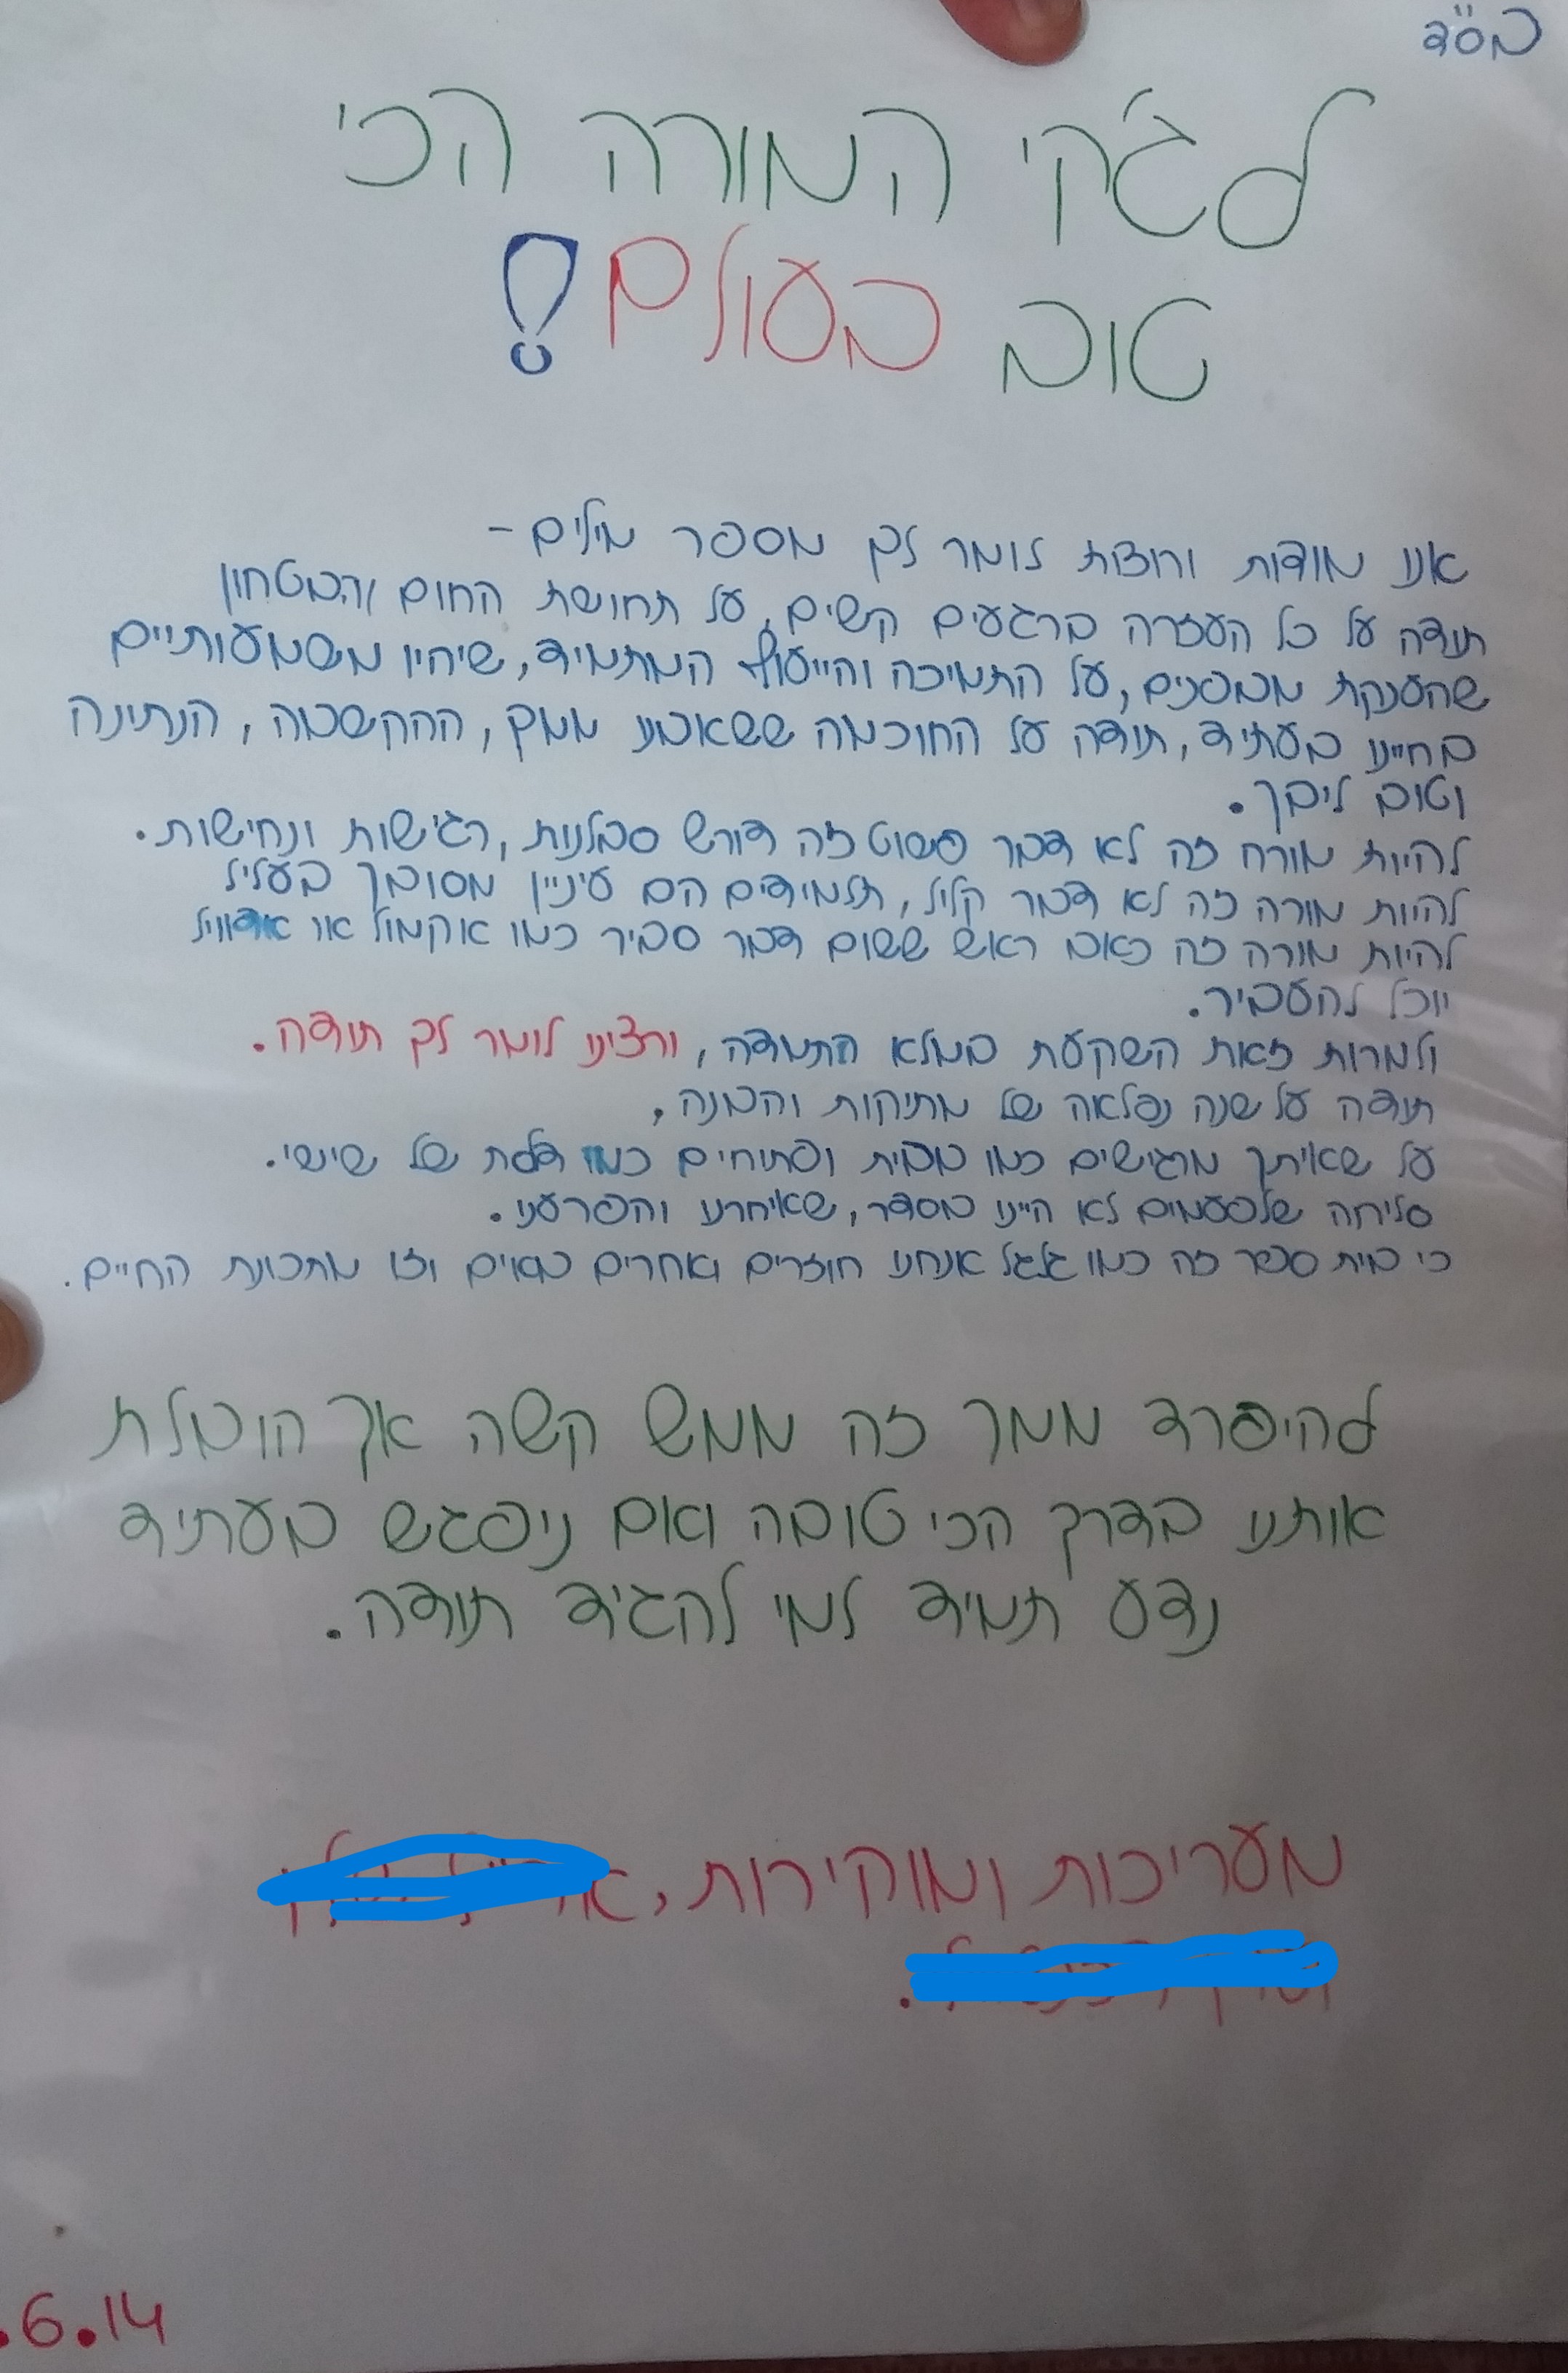 בס"ד
לג'קי המורה הכי
טוב בעולם!
אנו מודות ורוצות לומר לך מספר מילים-
תודה על כל העזרה ברגעים קשים, על תחושת החום והבטחון
שהענקת מבפנים, על התמיכה והייעוץ המתמיד, שיהיו משמעותיים
בחיינו בעתיד, תודה על החוכמה ששאבנו ממך, ההקשבה, הנתינה
וטוב ליבך.
להיות מורה זה לא דבר פשוט זה דורש סבלנות, רגישות ונחישות.
להיות מורה זה לא דבר קליל, תלמידים הם עיניין מסובך בעליל
להיות מורה זה כאב ראש ששום דבר סביר כמו אקמול או אדוויל
יוכל להעביר.
ולמרות זאת השקעת במלא התמדה, ורצינו לומר לך תודה.
תודה על שנה נפלאה של מתיקות והבנה,
על שאיתך מרגישים כמו בבית ופתוחים כמו דלת של שישי.
סליחה שלפעמים לא היינו בסדר, שאיחרנו והפרענו.
כי בית ספר זה כמו גלגל אנחנו חוזרים ואחרים באים וזו מתכונת החיים.
להיפרד ממך זה ממש קשה אך הובלת
אותנו בדרך הכי טובה ואם ניפגש בעתיד
נדע תמיד למי להגיד תודה.
מעריכות ומוקירות,
.6.14